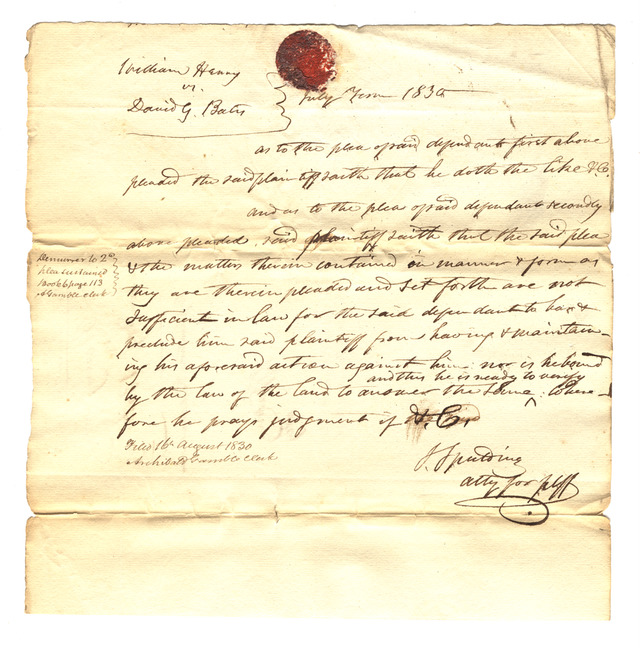 William Henry
vs.
David G. Bates
July Term 1830
as to the plea of said defendant first above
pleaded the said plaintiff saith that he doth the like &C.
and as to the plea of said defendant secondly
above pleaded, said plaintiff saith that the said plea
& the matters therein contained in manner & form as
they are therein pleaded and set forth are not
sufficient in law for the said defendant to bar &
preclude him said plaintiff from having & maintain-
ing his aforesaid action against him nor is he bound
and this he is ready to verify
by the law of the land to answer the same ^ where-
fore he prays judgment &C.
Spalding
atty for plff
Demurrer to 2d
plea sustained
Book 6 page 113
A Gamble Clerk
Filed 16th August 1830
Archibald Gamble Clerk